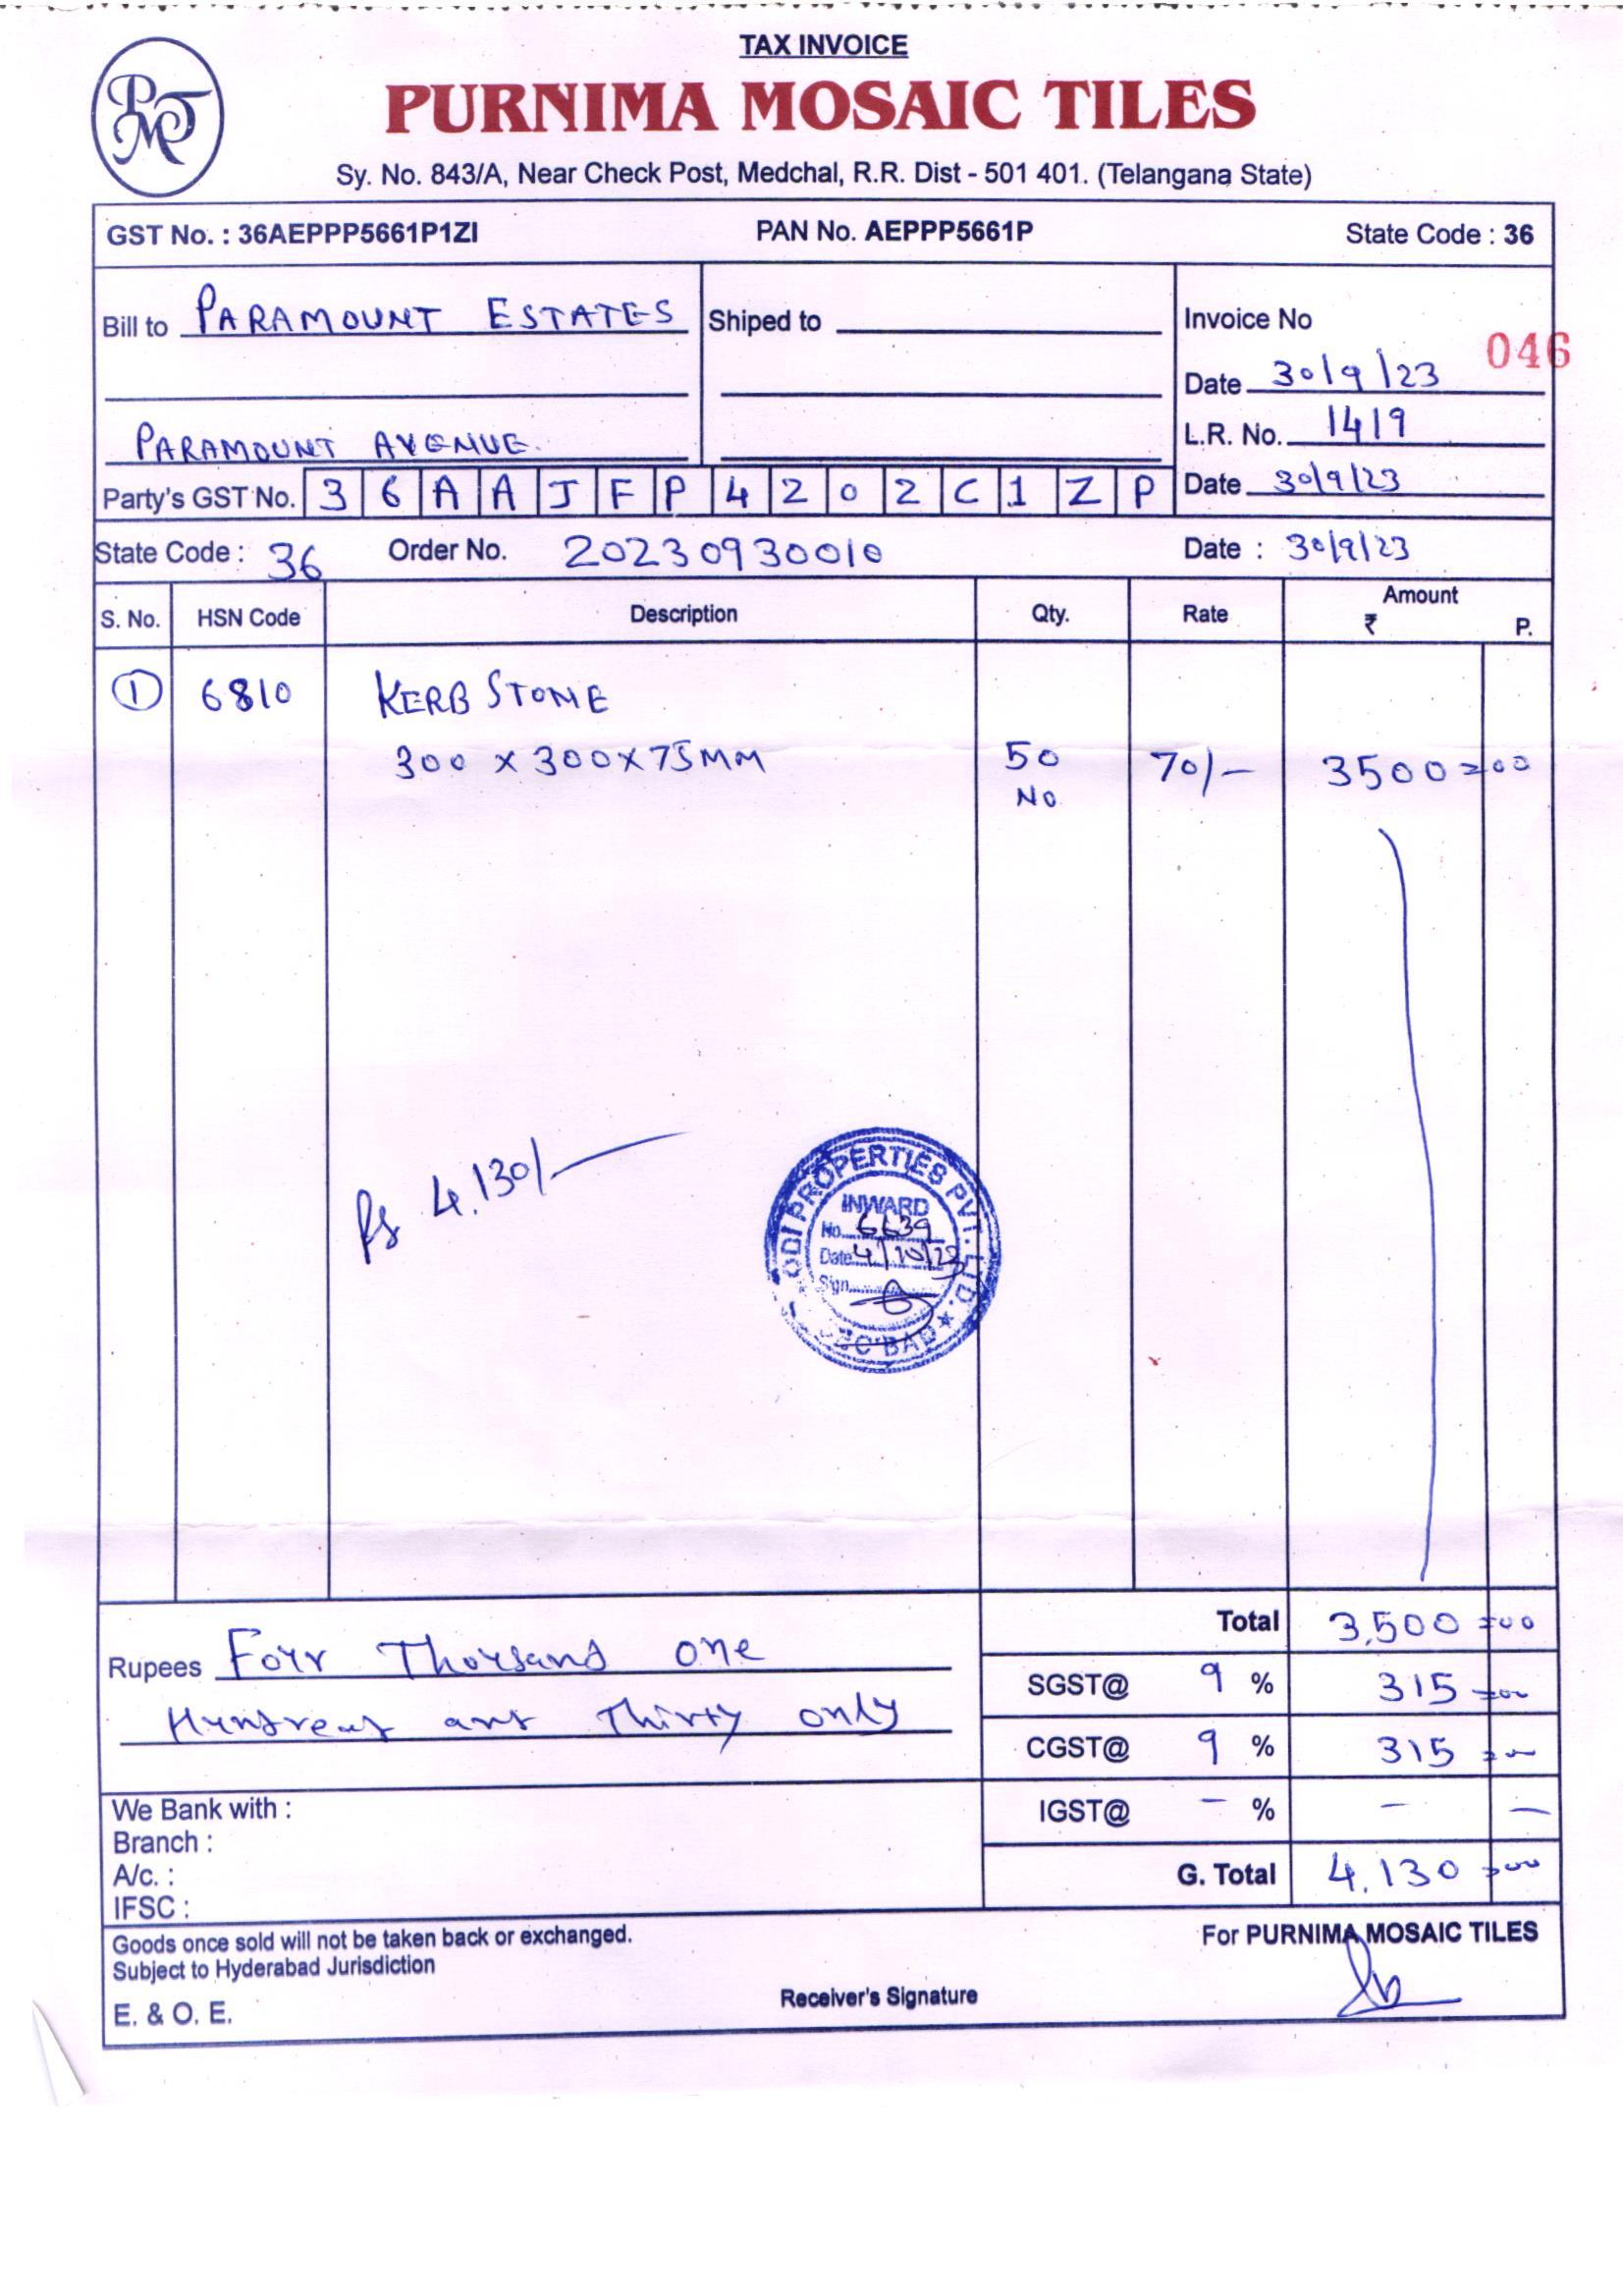 TAX INVOICE
PMT
PURNIMA MOSAIC TILES
Sy. No. 843/A, Near Check Post, Medchal, R.R. Dist - 501 401. (Telangana State)
GST No. : 36AEPPP5661P1ZI PAN No. AEPPP5661P State Code : 36
Bill to PARAMOUNT ESTATES
PARAMOUNT AVENUE.
Shiped to
Invoice No
046
Date 30/9/23
L.R. No. 1419
Date 30/9/23
Party's GST No. 36AAJFP4202C1ZP
State Code : 36 Order No. 20230930010 Date : 30/9/23
S. No. HSN Code Description Qty. Rate Amount
₹ P.
1 6810 KERB STONE
300 x 300 x 75MM 50 70/- 3500=00
No
Rs 4,130/-
ODI PROPERTIES PVT. LTD.
INWARD
No. 6639
Date 4/10/23
Sign
C'BAD ★
Total 3,500=00
Rupees Four Thousand one
Hundred and Thirty only
SGST@ 9 % 315=00
CGST@ 9 % 315=00
IGST@ - % - -
G. Total 4,130=00
We Bank with :
Branch :
A/c. :
IFSC :
Goods once sold will not be taken back or exchanged.
Subject to Hyderabad Jurisdiction
E. & O. E.
Receiver's Signature
For PURNIMA MOSAIC TILES